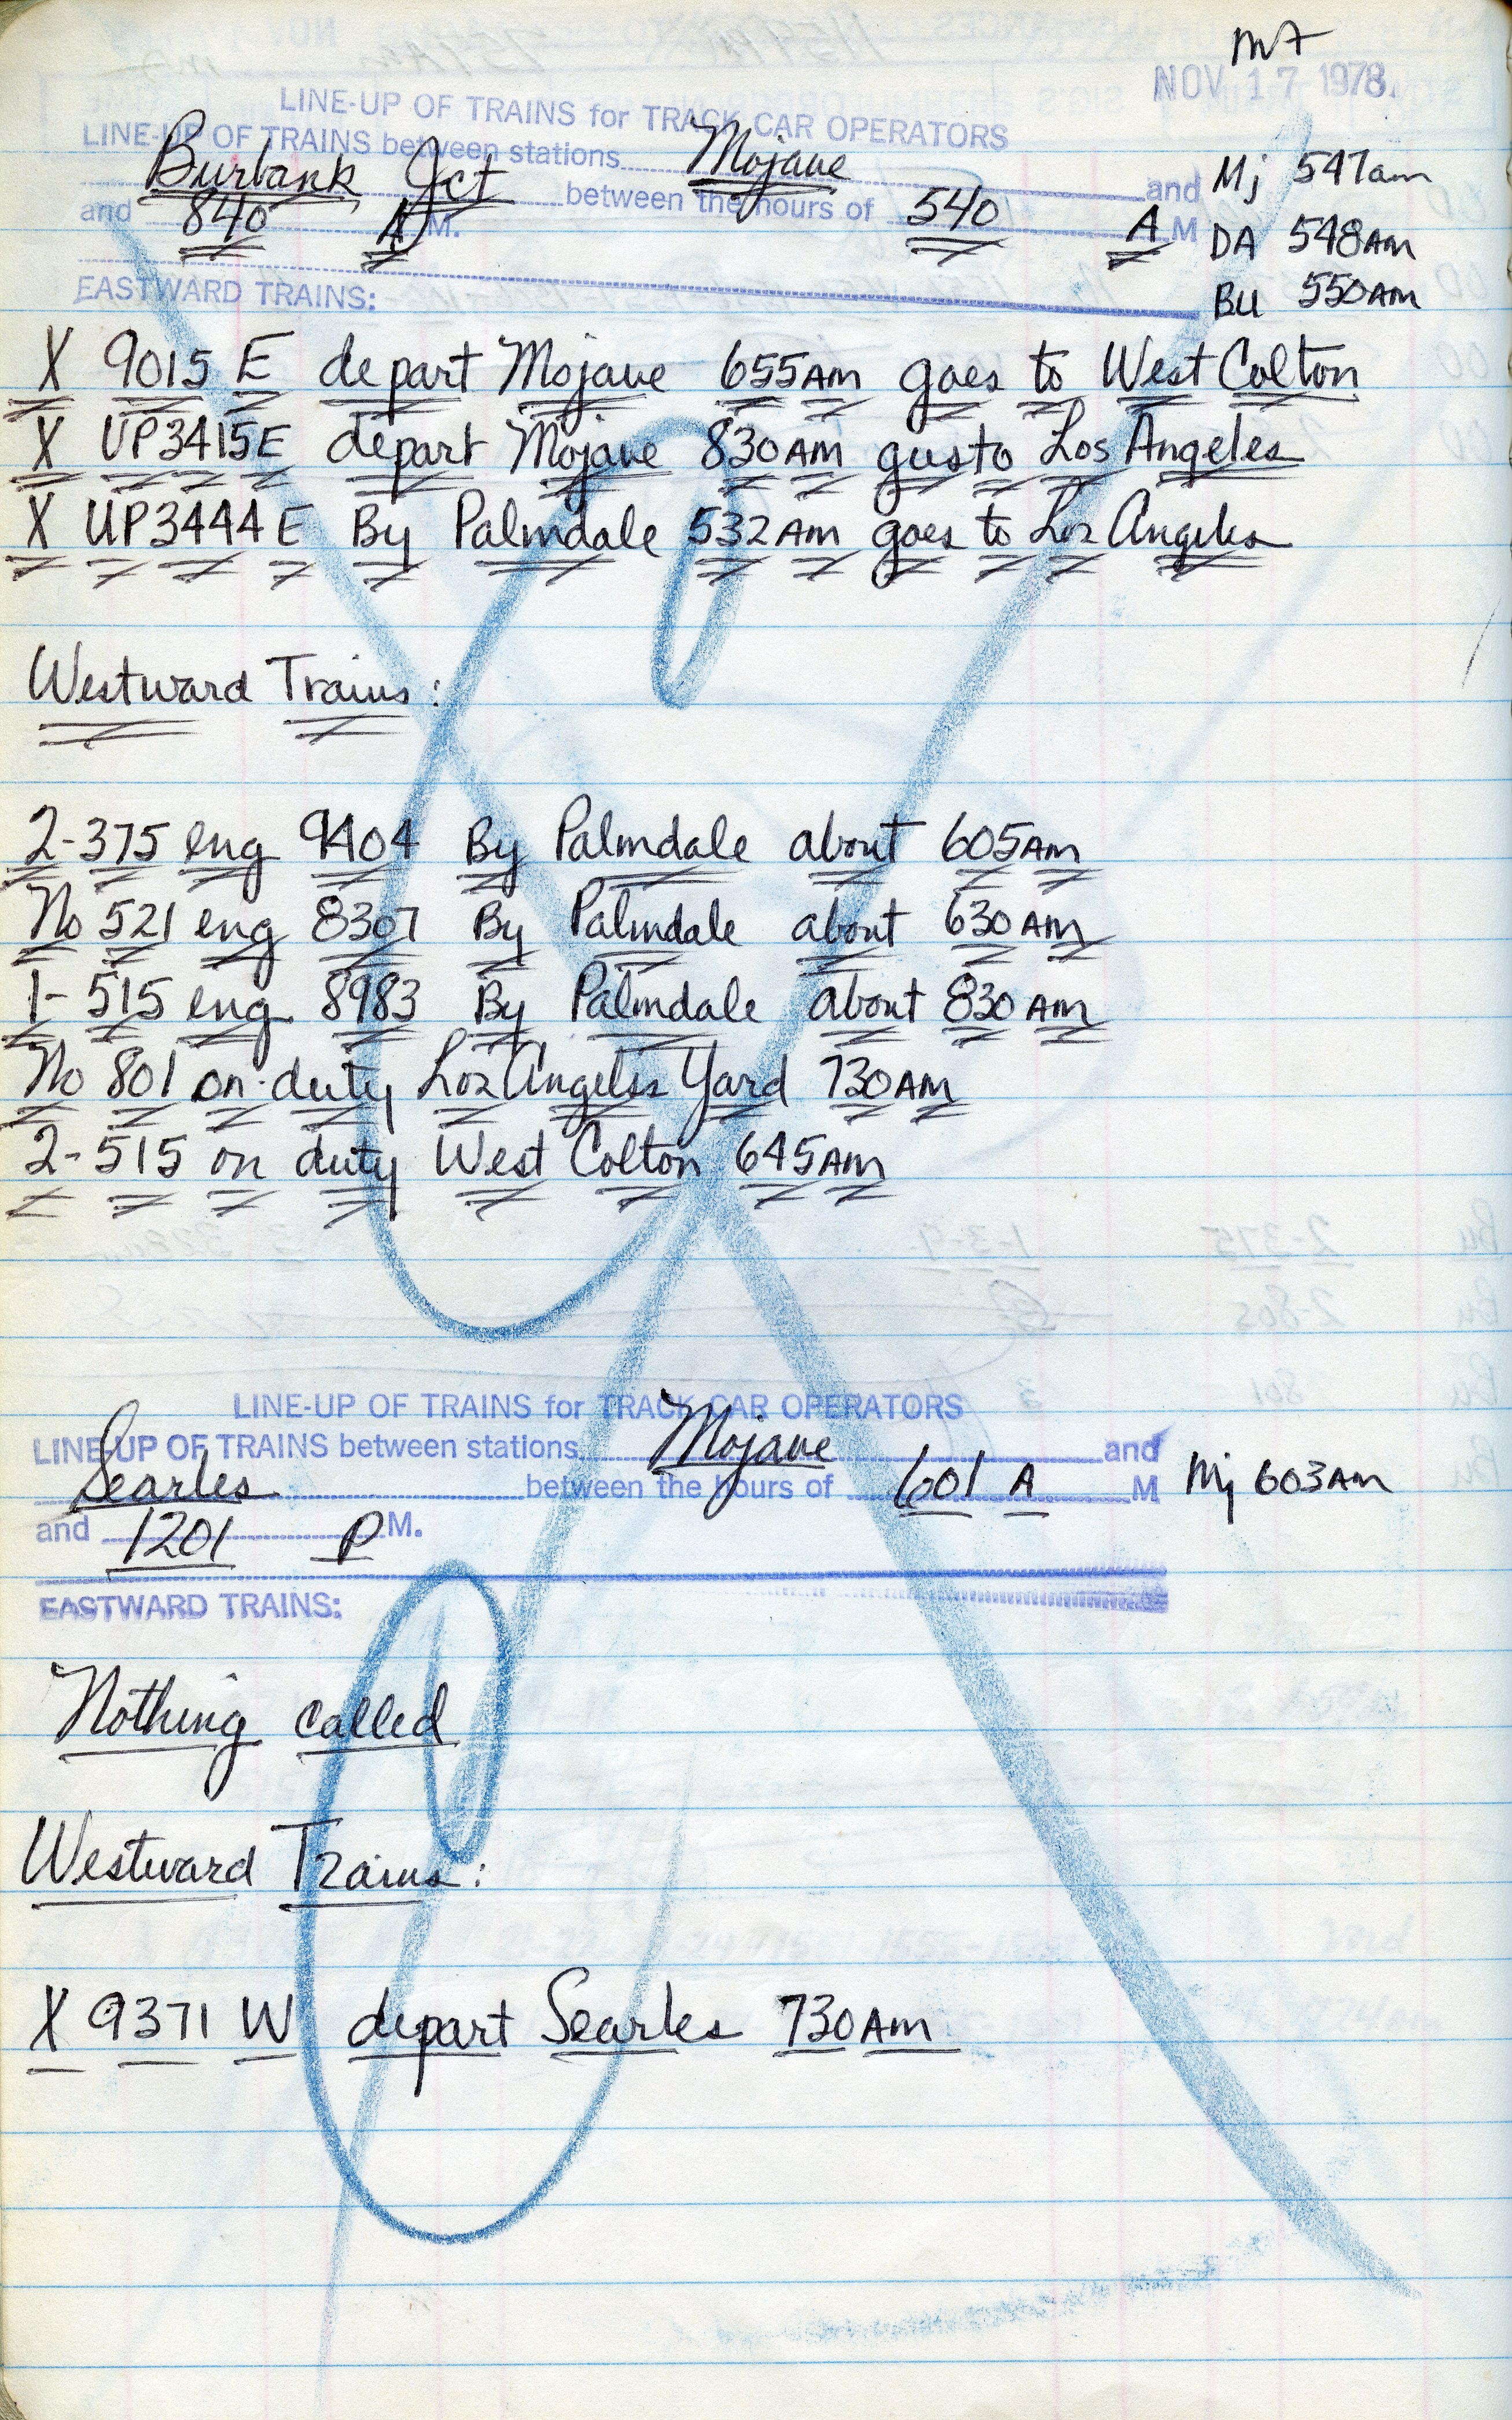 m7
NOV 17 1978
LINE-UP OF TRAINS for TRACK CAR OPERATORS
LINE-UP OF TRAINS between stations Mojave and
Burbank Jct between the hours of 540 A M
and 840 A M.
Mj 547am
DA 548AM
BU 550AM
EASTWARD TRAINS:
X 9015 E depart Mojave 655AM goes to West Colton
X UP3415E depart Mojave 830AM gusto Los Angeles
X UP3444E By Palmdale 532AM goes to Los Angeles
Westward Trains:
2-375 eng 9404 By Palmdale about 605AM
No 521 eng 8307 By Palmdale about 630AM
1-515 eng 8983 By Palmdale about 830AM
No 801 on duty Los Angeles Yard 730AM
2-515 on duty West Colton 645AM
LINE-UP OF TRAINS for TRACK CAR OPERATORS
LINE-UP OF TRAINS between stations Mojave and
Searles between the hours of 601 A M Mj 603AM
and 1201 P M.
EASTWARD TRAINS:
Nothing called
Westward Trains:
X 9371 W depart Searles 730AM